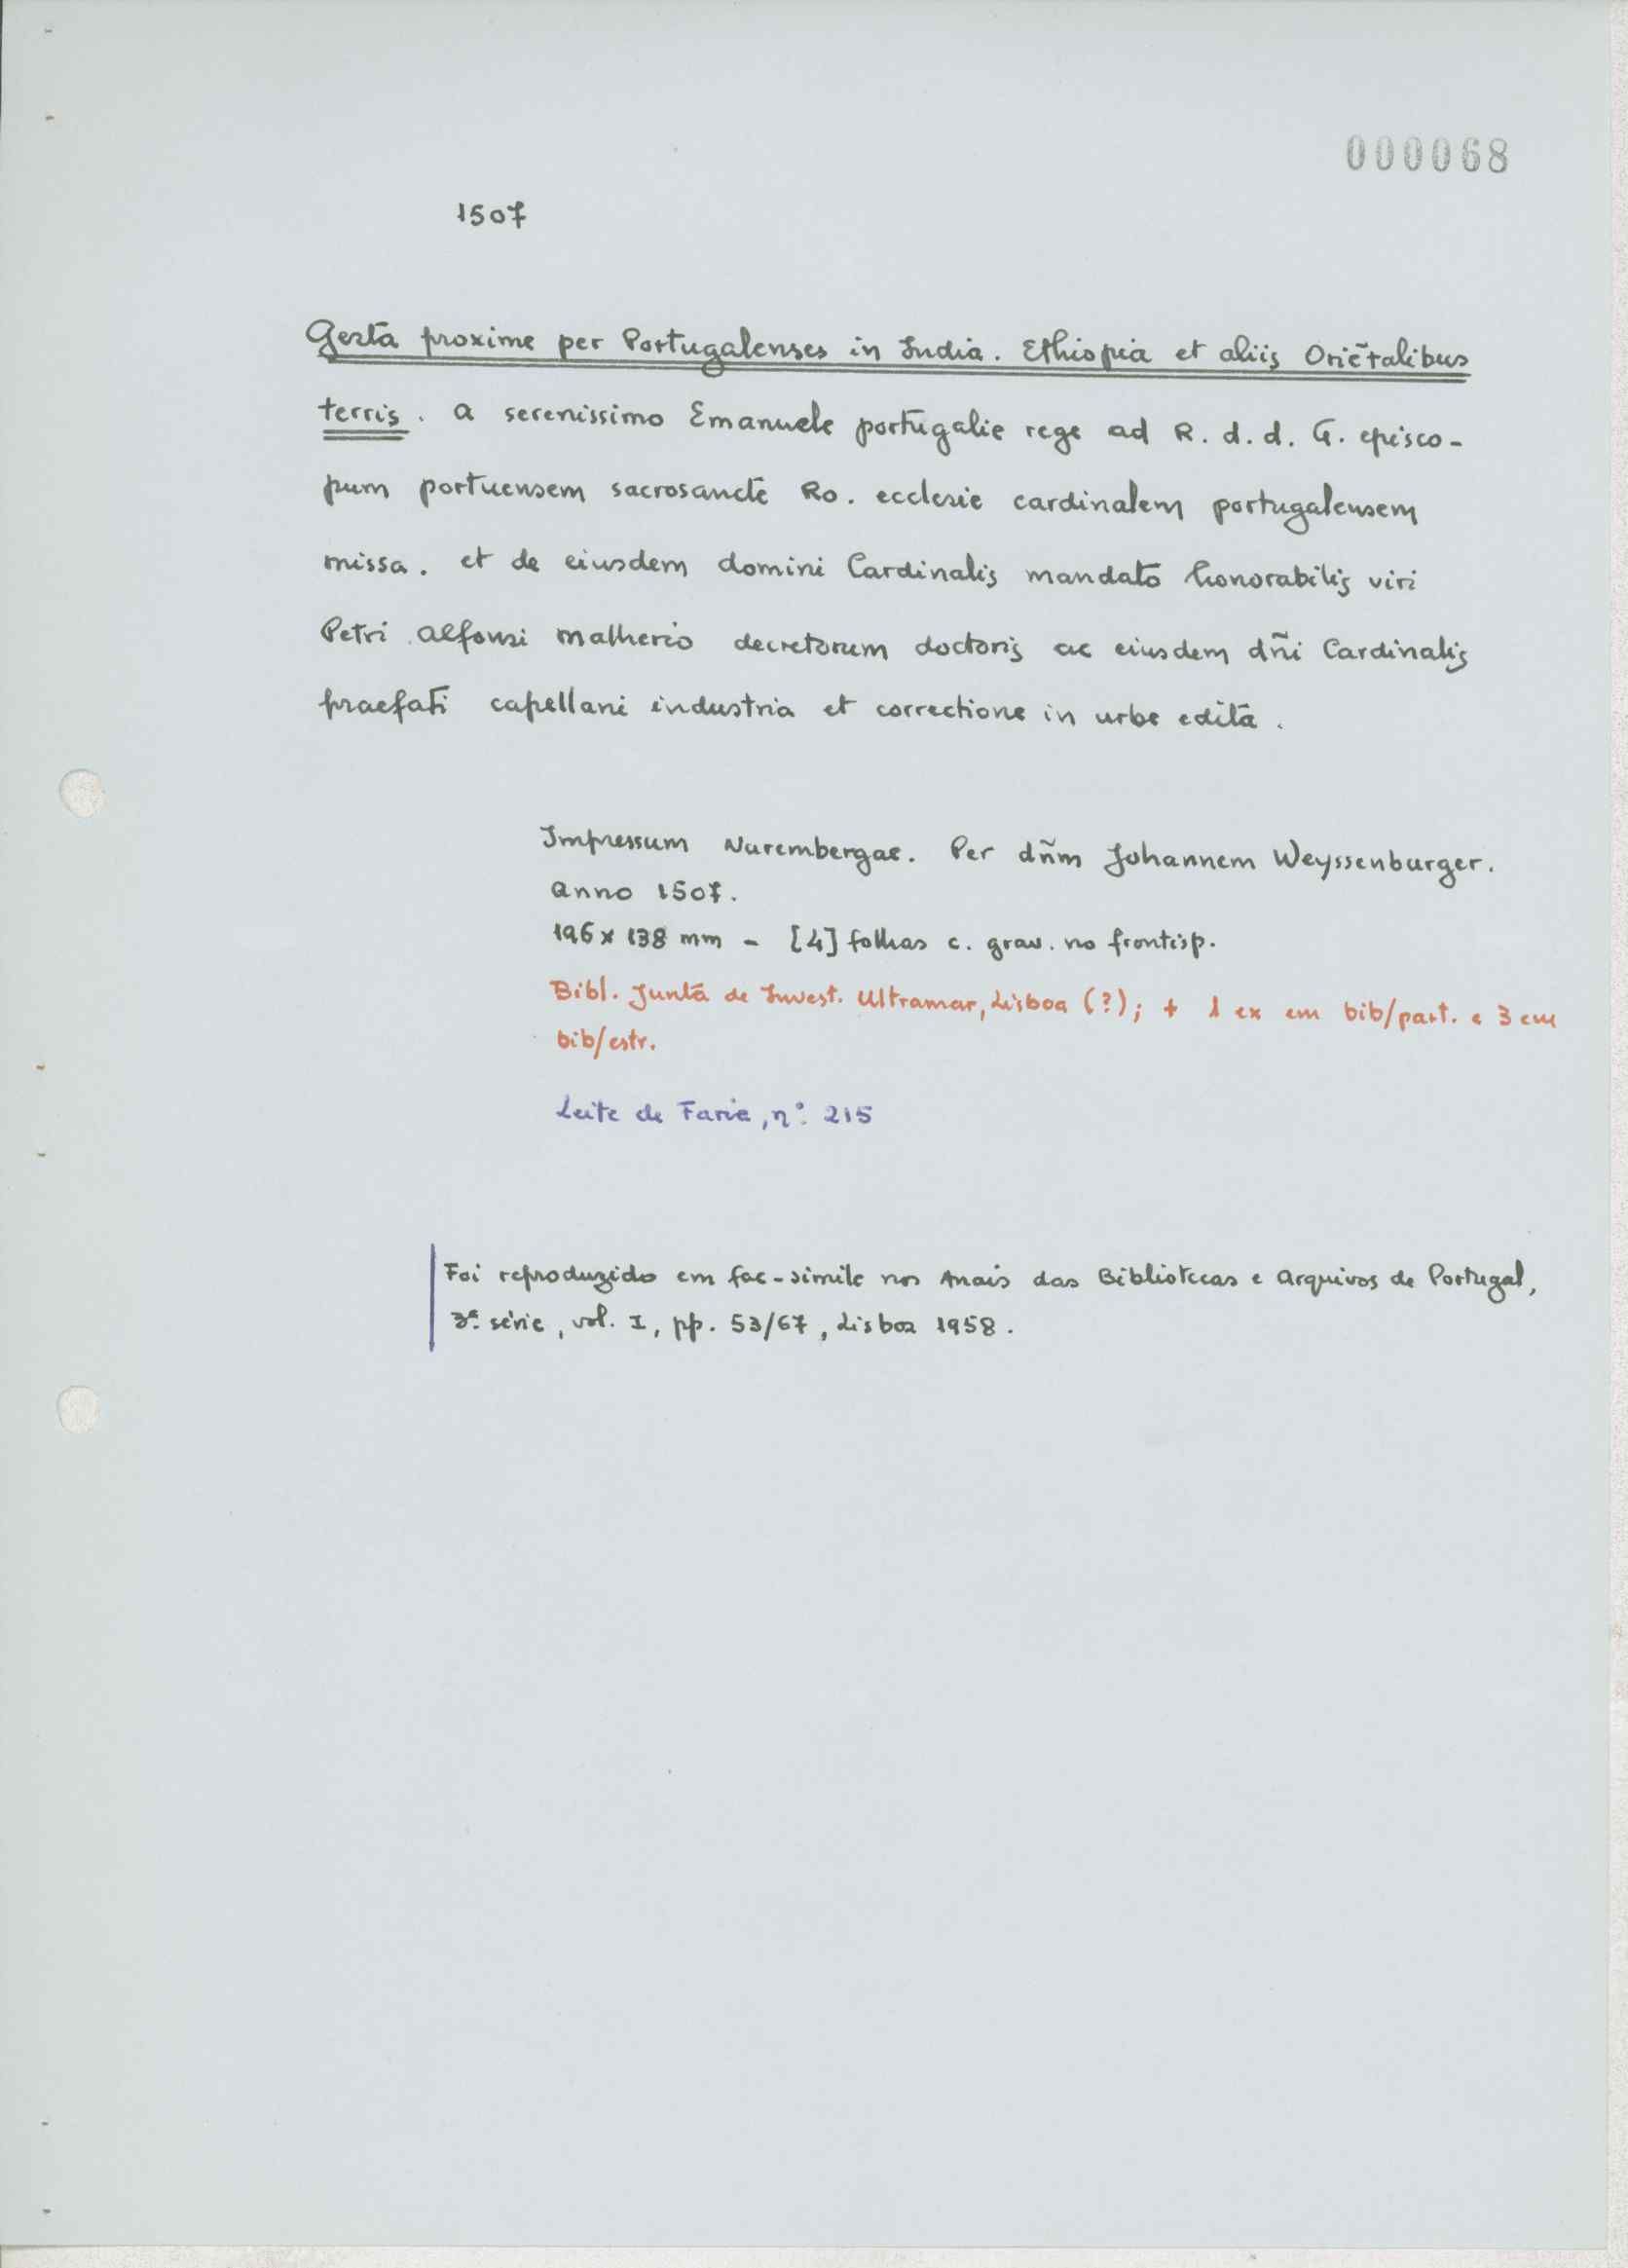 000068
1507
Gesta proxime per Portugalenses in India. Ethiopia et aliis Oriētalibus
terris. a serenissimo Emanuele portugalie rege ad R. d. d. G. episco-
pum portuensem sacrosancte Ro. ecclesie cardinalem portugalensem
missa. et de eiusdem domini Cardinalis mandato honorabilis viri
Petri Alfonsi malherio decretorum doctoris ac eiusdem dñi Cardinalis
praefati capellani industria et correctione in urbe edita.
Impressum Nurembergae. Per dñm Johannem Weyssenburger.
Anno 1507.
196 x 138 mm - [4] folhas c. grav. no frontisp.
Bibl. Junta de Invest. Ultramar, Lisboa (?); + 1 ex em bib/part. e 3 em
bib/estr.
Leite de Faria, nº. 215
Foi reproduzido em fac-simile nos Anais das Bibliotecas e Arquivos de Portugal,
3ª. série, vol. I, pp. 53/67, Lisboa 1958.